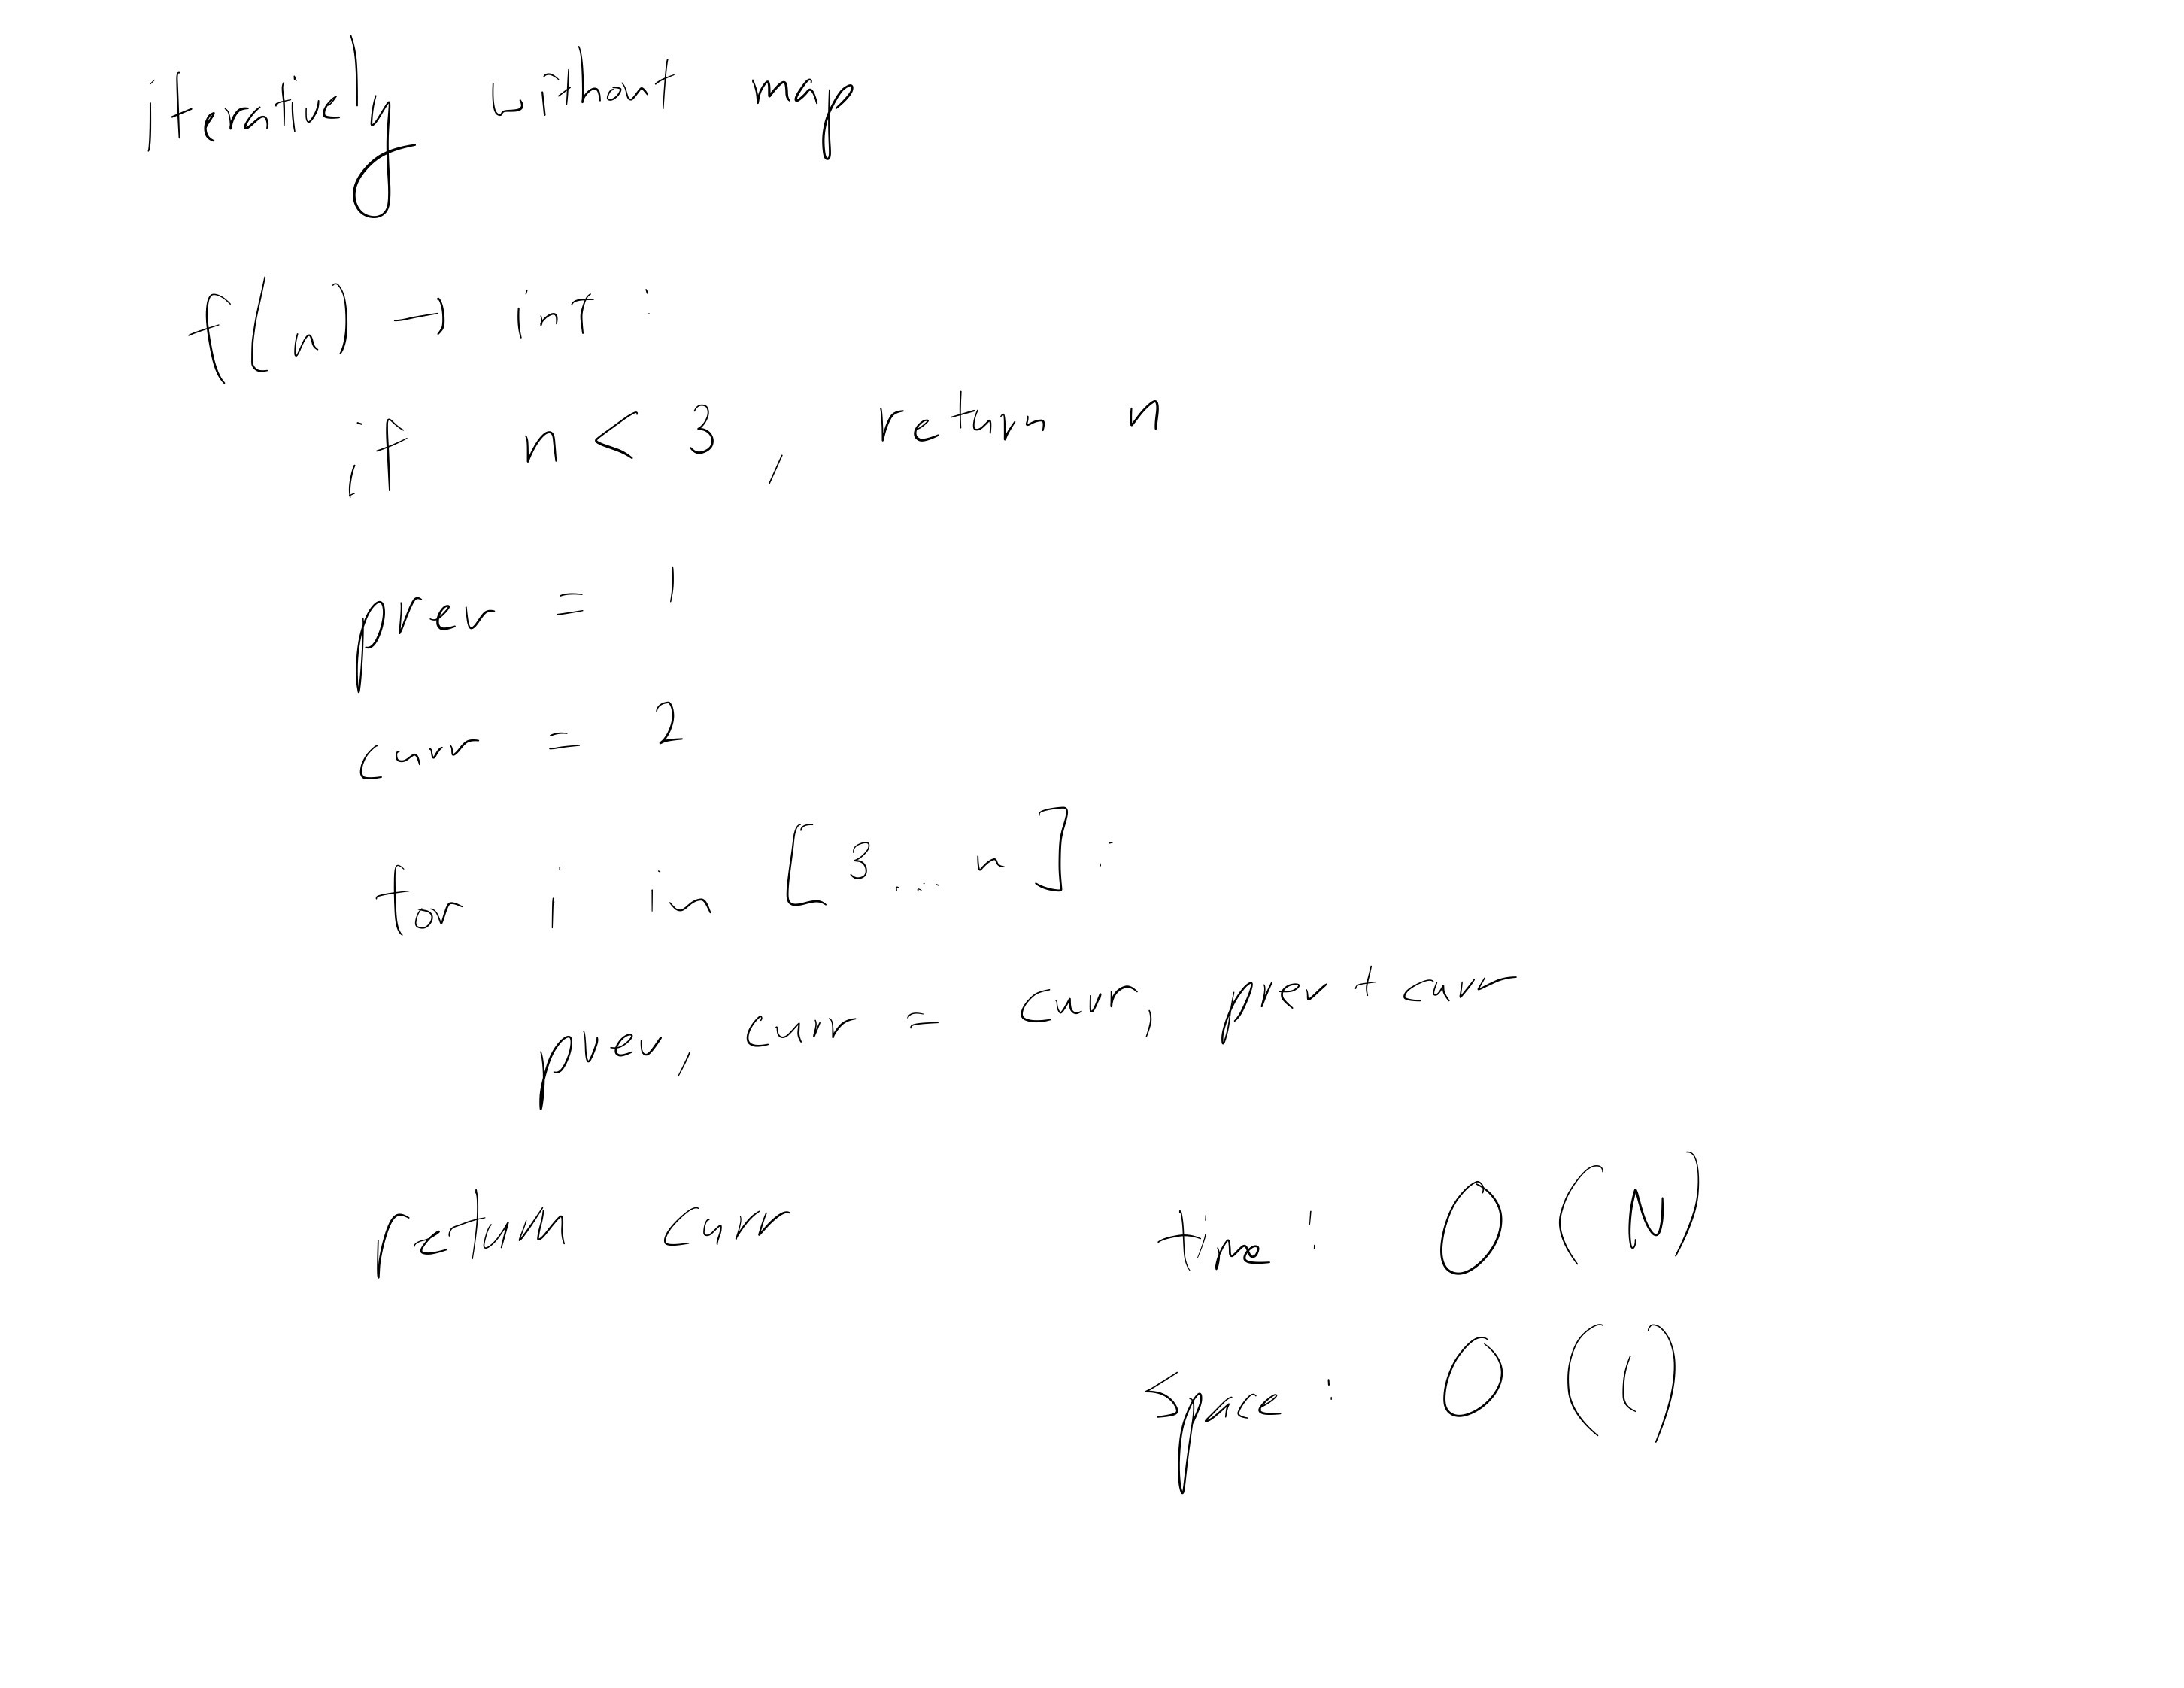 iteratively without map
f(n) → int :
if n < 3 , return n
prev = 1
curr = 2
for i in [ 3 ... n ] :
prev, curr = curr, prev + curr
return curr
time : O ( N )
space : O ( 1 )